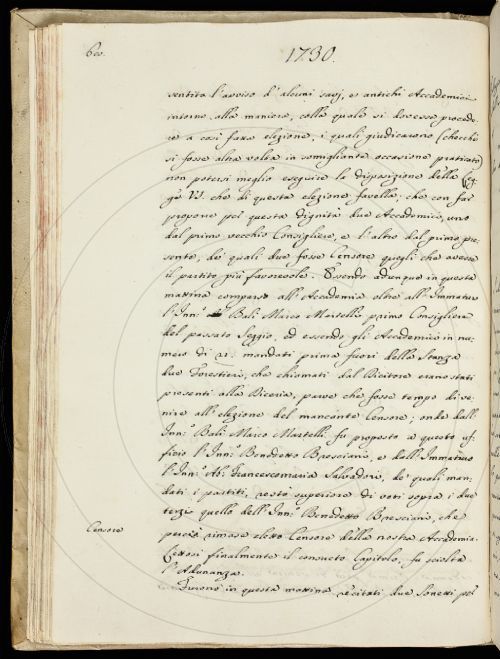 60.
1730.
sentito l'avviso d'alcuni savj, et antichi Accademici
intorno alla maniera, colla quale si dovesse procede-
re a così fatta elezione, i quali giudicarono (checché
si fosse altra volta in somigliante occasione praticato)
non potersi meglio eseguire la disposizione della Leg-
ge VI. che di questa elezione favella; che con far
proporre per questa dignità due Accademici, uno
dal primo vecchio Consigliere, e l'altro dal primo pre-
sente, de' quali due fosse Censore quegli che avesse
il partito più favorevole. Essendo adunque in questa
mattina comparso all'Accademia oltre all'Immaturo
l'Inn.º Balì Marco Martelli primo Consigliere
del passato Seggio, ed essendo gli Accademici in nu-
mero di 21. mandati prima fuori della Stanza
due Forestieri, che chiamati dal Ricitore erano stati
presenti alla Diceria, parve che fosse tempo di ve-
nire all'elezione del mancante Censore; onde dall'
Inn.º Balì Marco Martelli fu proposto a questo uf-
ficio l'Inn.º Benedetto Bresciani, e dall'Immaturo
l'Inn.º Ab.º Francescomaria Salvadori, de' quali man-
dati i partiti, restò superiore di voti sopra i due
terzi quello dell'Inn.º Benedetto Bresciani, che
Censore
perciò rimase eletto Censore della nostra Accademia.
Lettosi finalmente il consueto Capitolo, fu sciolta
l'Adunanza.
Furono in questa mattina recitati due Sonetti pe'